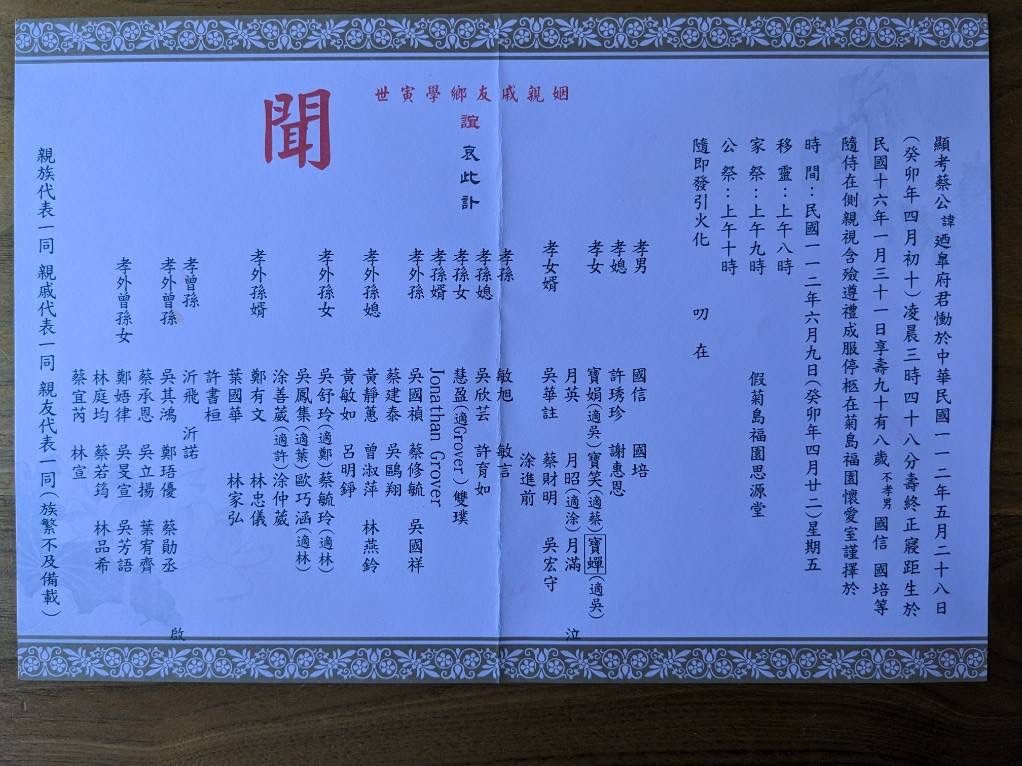 顯考蔡公諱廼阜府君慟於中華民國一一二年五月二十八日
(癸卯年四月初十)凌晨三時四十八分壽終正寢距生於
民國十六年一月三十一日享壽九十有八歲不孝男國信 國培等
隨侍在側親視含殮遵禮成服停柩在菊島福園懷愛室謹擇於
時間:民國一一二年六月九日(癸卯年四月廿二)星期五
移靈:上午八時
家祭:上午九時 假菊島福園思源堂
公祭:上午十時
隨即發引火化 叨在
姻親戚友鄉學寅世
誼哀此訃
聞
孝男 國信 國培
孝媳 許琇珍 謝惠恩
孝女 寶娟(適吳)寶笑(適蔡)寶蟬(適吳)
月英 月昭(適涂)月滿 泣
孝女婿 吳華註 蔡財明 吳宏守
涂進前
孝孫 敏旭 敏言
孝孫媳 吳欣芸 許育如
孝孫女 慧盈(適Grover)雙璞
孝孫婿 Jonathan Grover
孝外孫 吳國禎 蔡修毓 吳國祥
蔡建泰 吳鷗翔
孝外孫媳 黃靜蕙 曾淑萍 林燕鈴
黃敏如 呂明錚
孝外孫女 吳舒玲(適鄭)蔡毓玲(適林)
吳鳳集(適葉)歐巧涵(適林)
涂善葳(適許)涂仲葳
孝外孫婿 鄭有文 林忠儀
葉國華 林家弘
許書桓
孝曾孫 沂飛 沂諾
孝外曾孫 吳其鴻 鄭珸優 蔡勛丞 啟
蔡承恩 吳立揚 葉宥齊
孝外曾孫女 鄭娪律 吳旻宣 吳芳語
林庭均 蔡若筠 林品希
蔡宜芮 林宣
親族代表一同 親戚代表一同 親友代表一同(族繁不及備載)